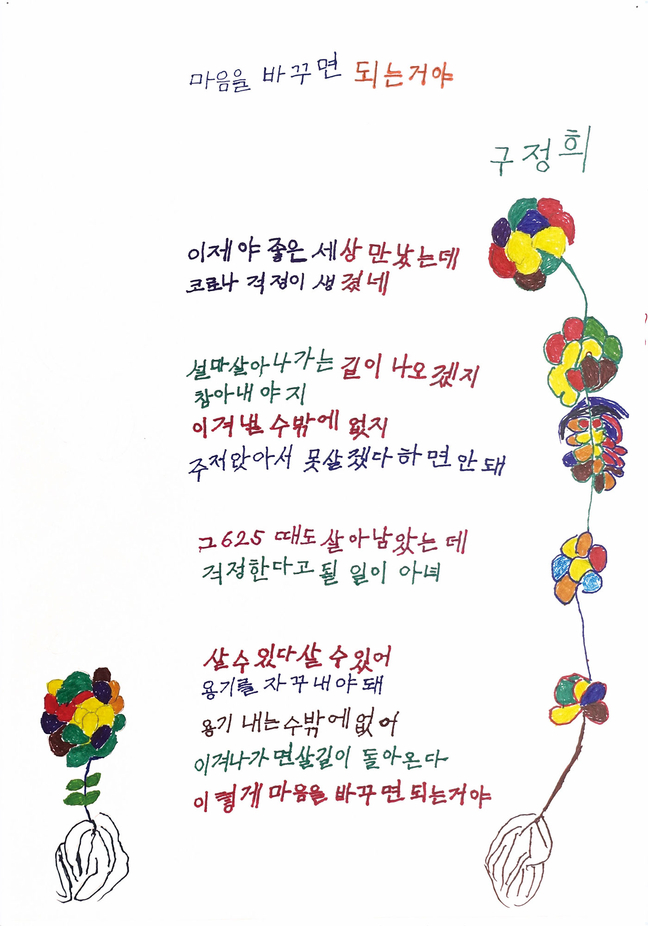 마음을 바꾸면 되는거야
구정희
이제야 좋은 세상 만났는데
코로나 걱정이 생겼네
설마살아나가는 길이 나오겠지
참아내야지
이겨낼 수밖에 없지
주저앉아서 못살겠다하면안돼
그625 때도살아남았는데
걱정한다고 될 일이 아녀
살수있다살수있어
용기를 자꾸내야돼
용기 내는수밖에없어
이겨나가면살길이 돌아온다
이렇게 마음을 바꾸면되는거야